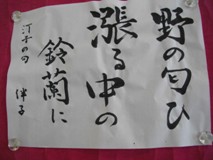 野の匂ひ
漲る中の
鈴蘭に
汀子の句